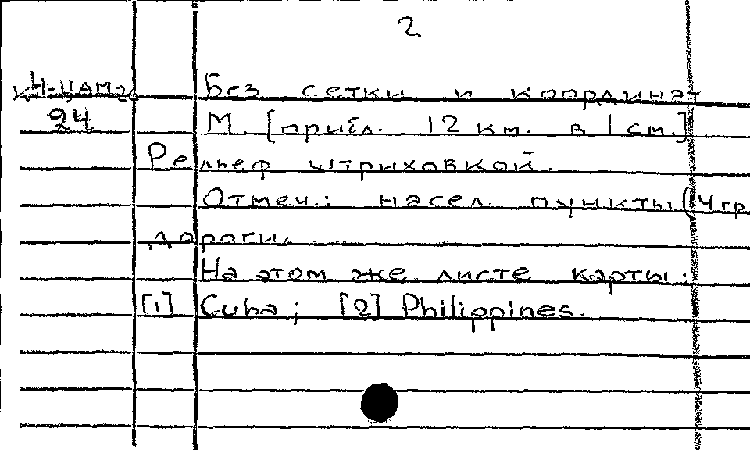 2
Без сетки и координат
24 М. [прибл. 12 км. в 1 см.]
Рельеф штриховкой.
Отмеч.: насел. пункты (4 гр
дороги.
На этом же листе карты:
[1] Cuba; [2] Philippines.